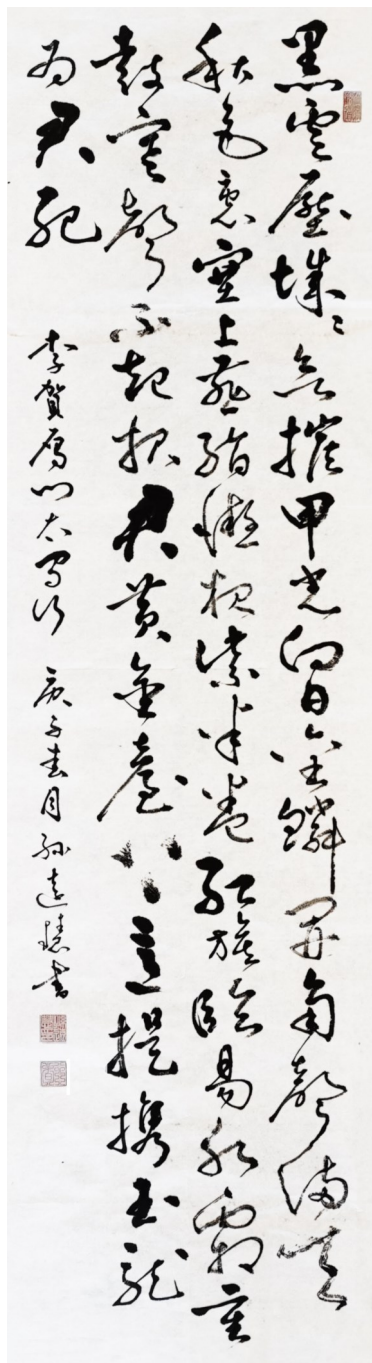 黑雲壓城〻欲摧甲光向日金鱗開角聲滿天
秋色裏塞上燕脂凝夜紫半卷紅旗臨易水霜重
鼓寒聲不起報君黄金臺上意提攜玉龍
為君死
李賀雁門太守行 庚子春月孫遠書